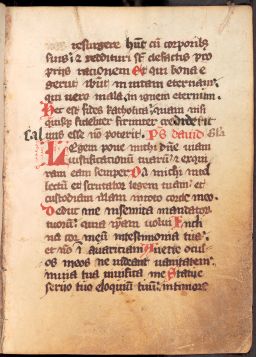 resurgere hñt cū corporib;
suis: ⁊ reddituri sūt de factis pro
prijs rationem Et qui bona e
gerūt ibūt in vitam eternam:
qui vero mala, in ignem eternum.
Hec est fides katholica: quam nisi
quisq; fideliter firmiterq; crediderit
saluus esse nō poterit. Ps david Gla.
Legem pone michi dñe viam
iustificationū tuarū: ⁊ exquirā
eam semper. Da michi intel
lectū et scrutabor legem tuam: et
custodiam illam in toto corde meo.
Deduc me in semita mandator
tuorū: quia ipam volui Incli
na cor meū in testimonia tua:
et nō ī avaritiam Averte ocu
los meos ne videant vanitatem:
in via tua vivifica me Statue
servo tuo eloquiū tuū: in timore